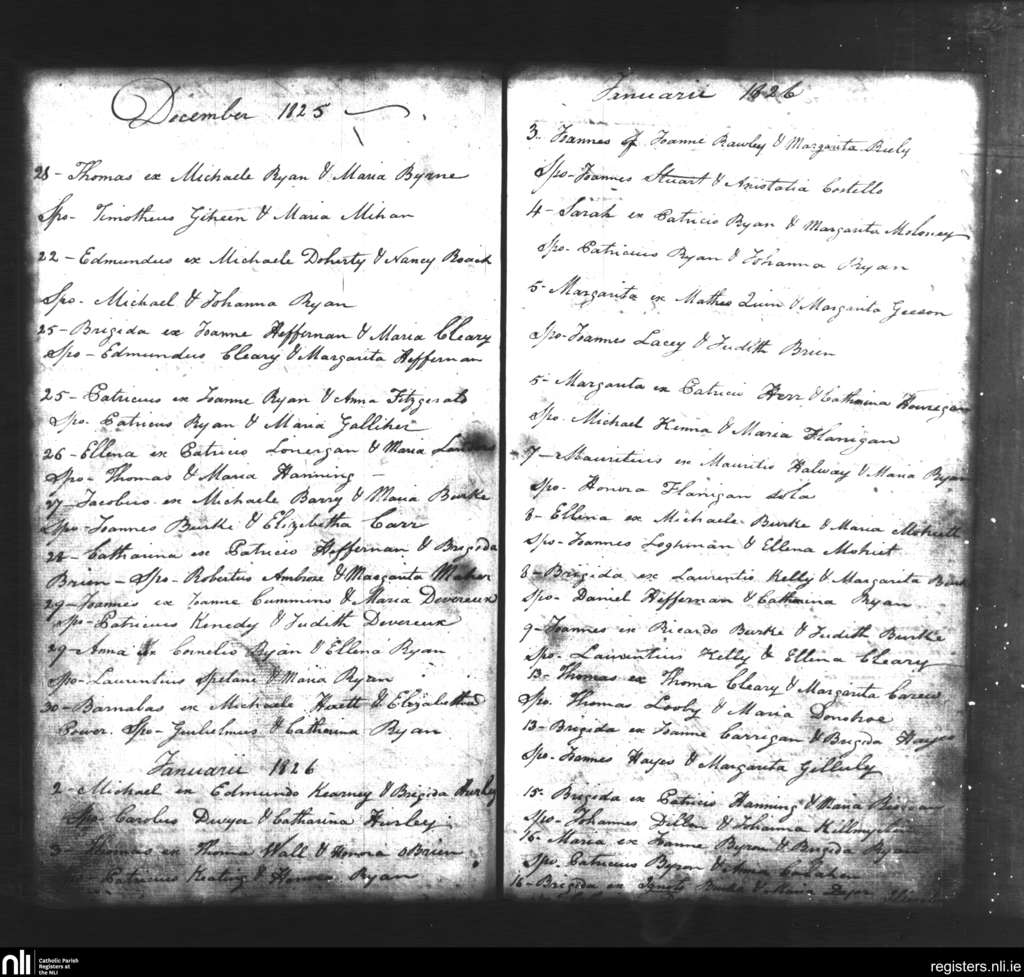 December 1825
21 - Thomas ex Michaele Ryan & Maria Byrne
Spo- Timotheus Giheen & Maria Mihan
22 - Edmundus ex Michaele Doherty & Nancy Roach
Spo. Michael & Johanna Ryan
25 - Brigida ex Joanne Heffernan & Maria Cleary
Spo - Edmundus Cleary & Margarita Heffernan
25 - Patricius ex Joanne Ryan & Anna Fitzgerald
Spo. Patricius Ryan & Maria Galliher
26 - Ellena ex Patricio Lonergan & Maria
Spo - Thomas & Maria Hanning -
27 - Jacobus ex Michaele Barry & Maria Burke
Spo - Joannes Burke & Elizabetha Carr
28 - Catharina ex Patricio Heffernan & Brigida
Brien - Spo - Robertus Ambrose & Margarita Maher
29 - Joannes ex Joanne Cummins & Maria Devereux
Spo - Patricius Kenedy & Judith Devereux
29 - Anna ex Cornelio Ryan & Ellena Ryan
Spo - Laurentius Spelani & Maria Ryan
30 - Barnabas ex Michaele & Elizabetha
Power. Spo - Gulielmus & Catherina Ryan
Januarii 1826
2 - Michael ex Edmundo Kearney & Brigida Hurley
Spo - Carolus Dwyer & Catharina Hurley
3 - Thomas ex Thoma Wall & Honora OBrien
Spo - Patricius Keating & Honora Ryan
Januarii 1826
3. Joannes Joanne Rawley & Margarita Reely
Spo - Joannes Stuart & Anistatia Costello
4 - Sarah ex Patricio Ryan & Margarita Moloney
Spo - Patricius Ryan & Johanna Ryan
5 - Margarita ex Matheo Quin & Margarita Geeson
Spo - Joannes Lacey & Judith Brien
5 - Margarita ex Patricio Herr & Catharina Houregan
Spo. Michael Kinna & Maria Flanigan
7 - Mauritius ex Mauritio Halway & Maria Ryan
Spo. Honora Flanigan sola
8 - Ellena ex Michaele Burke & Maria
Spo - Joannes Loghman & Ellena
8 - Brigida ex Laurentio Kelly & Margarita
Spo - Daniel Heffernan & Catharina Ryan
9 - Joannes ex Ricardo Burke & Judith Burke
Spo - Laurentius Kelly & Ellena Cleary
13 - Thomas ex Thoma Cleary & Margarita Carew
Spo. Thomas Looby & Maria Donohoe
13 - Brigida ex Joanne Carrigan & Brigida Hayes
Spo. Joannes Hayes & Margarita Gilluly
15 - Brigida ex Patricio Hanning & Maria
Spo - Johannes Dillon & Johanna
16 - Maria ex Joanne Byron & Brigida Ryan
Spo. Patricius Byron & Anna
16 - Brigida ex Burke & Maria
nli
Catholic Parish
Registers at
the NLI
registers.nli.ie